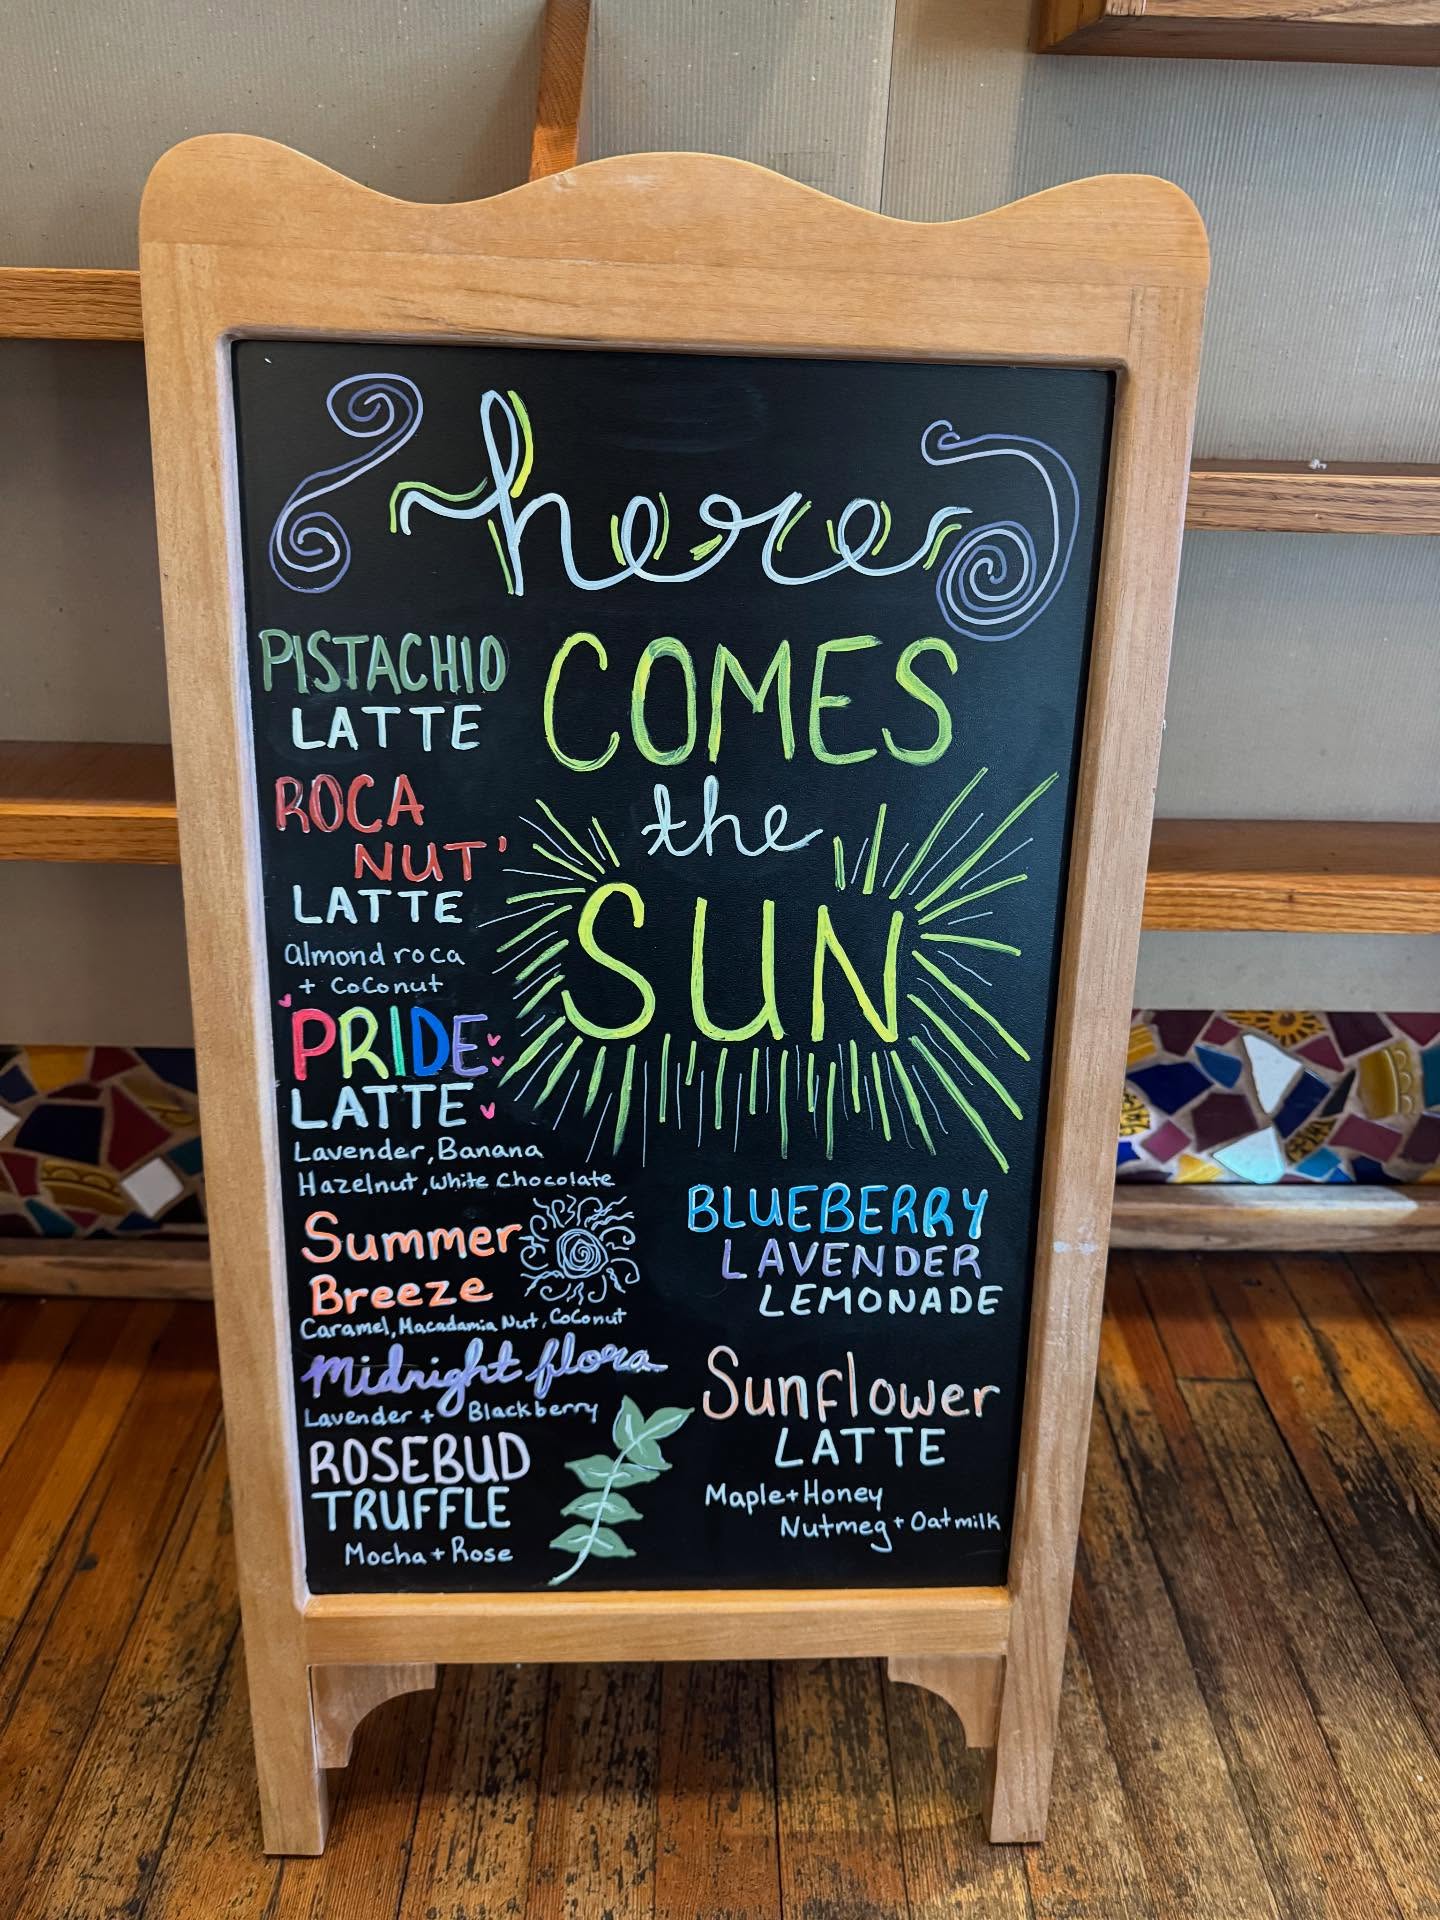 here
COMES
the
SUN
PISTACHIO
LATTE
ROCA
NUT'
LATTE
Almond roca
+ Coconut
PRIDE
LATTE
Lavender, Banana
Hazelnut, White Chocolate
Summer
Breeze
Caramel, Macadamia Nut, Coconut
Midnight flora
Lavender + Blackberry
ROSEBUD
TRUFFLE
Mocha + Rose
BLUEBERRY
LAVENDER
LEMONADE
Sunflower
LATTE
Maple + Honey
Nutmeg + Oatmilk